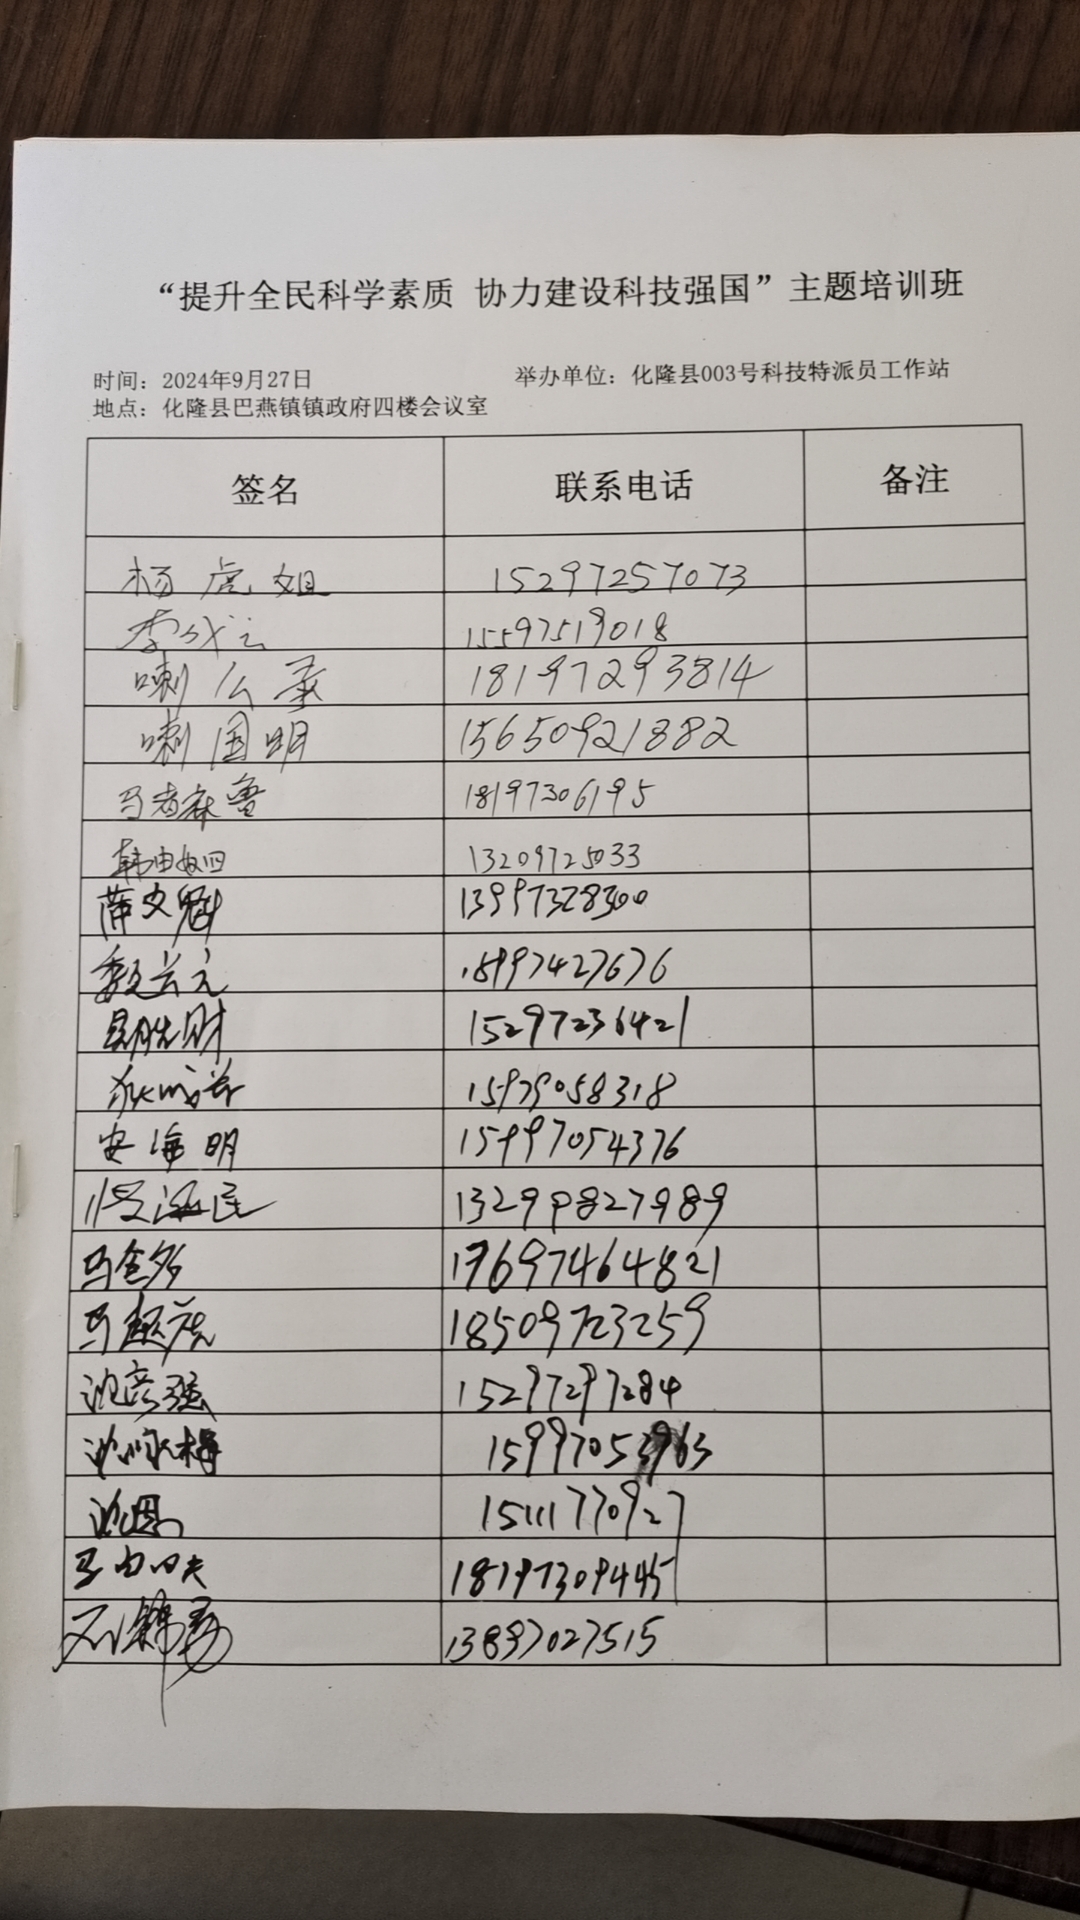 “提升全民科学素质 协力建设科技强国”主题培训班
时间：2024年9月27日 举办单位：化隆县003号科技特派员工作站
地点：化隆县巴燕镇镇政府四楼会议室
签名 联系电话 备注
杨虎姐 15297257073
李成云 15597519018
喇公 18197293814
喇国明 15650921882
马者麻鲁 18197306195
韩由奴四 13209725033
薛文魁 13997328300
魏兰元 18997427676
胜财 15297236421
15979058318
安海明 15997054376
海民 13299827989
马金 17697464821
马赵虎 18509723259
沈彦强 15297297284
沈 梅 15997053963
沈恩 15111770927
马由四夫 18197309445
13897027515